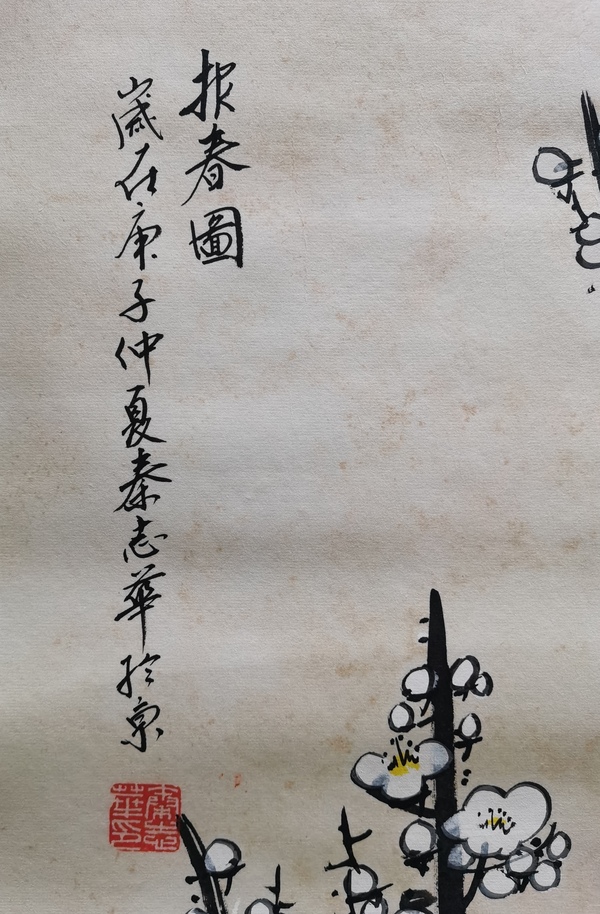 报春圖
歲在庚子仲夏秦志華於京
秦志華印